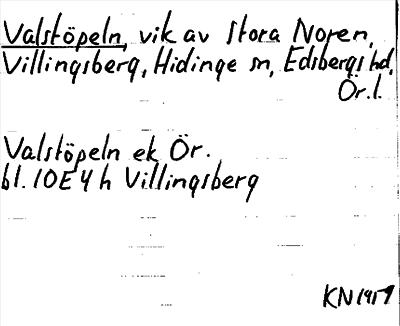 Valstöpeln, vik av Stora Noren,
Villingsberg, Hidinge sn, Edsbergs hd,
Ör. l.
Valstöpeln ek Ör.
bl. 10E 4 h Villingsberg
KN